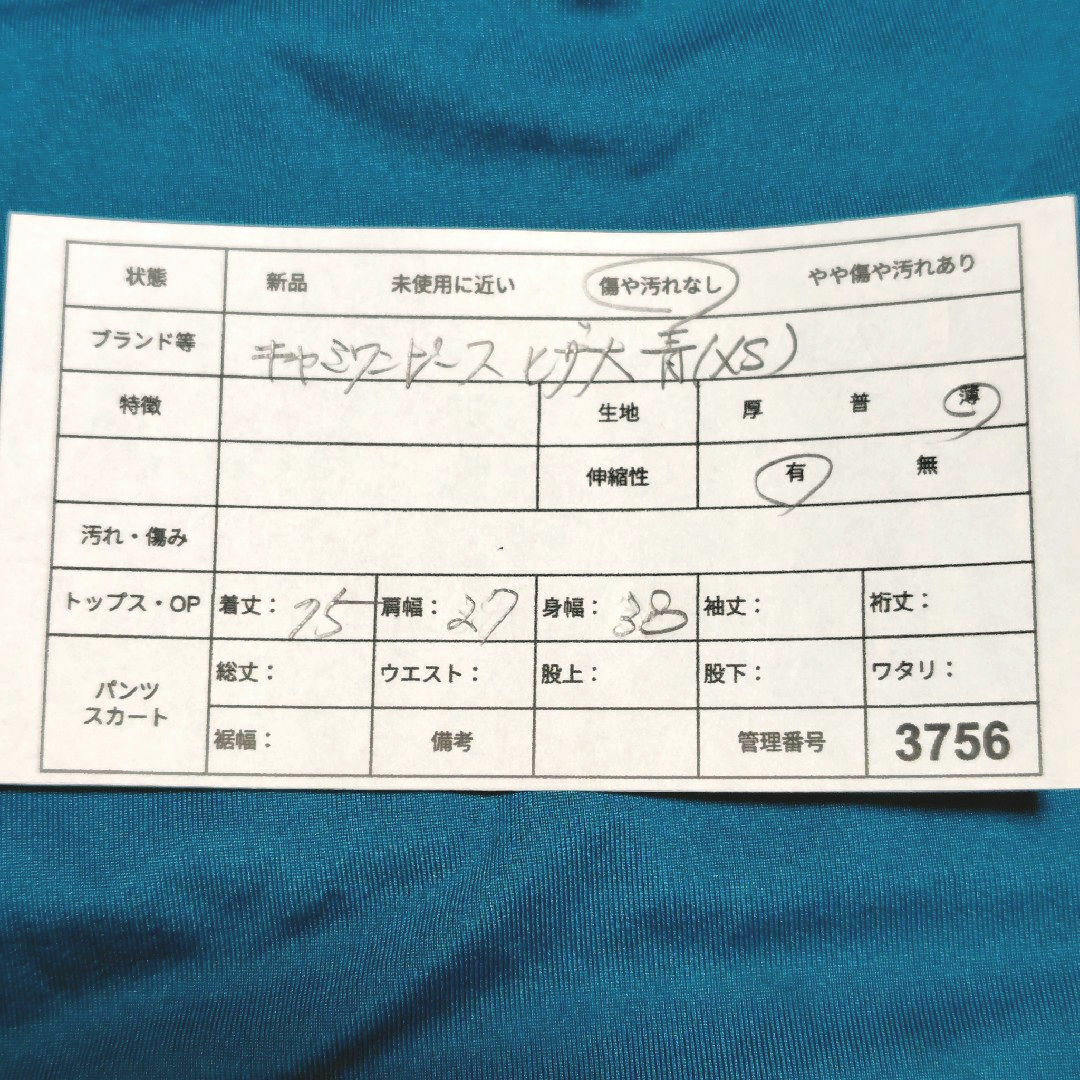 状態 新品 未使用に近い 傷や汚れなし やや傷や汚れあり
ブランド等 キャミワンピース ヒザ丈 青(XS)
特徴 生地 厚 普 薄
伸縮性 有 無
汚れ・傷み
トップス・OP 着丈: 75 肩幅: 27 身幅: 38 袖丈: 裄丈:
パンツ スカート 総丈: ウエスト: 股上: 股下: ワタリ:
裾幅: 備考 管理番号 3756